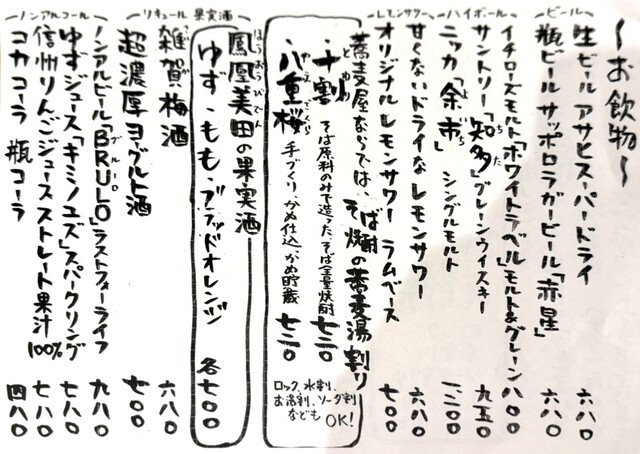 〜お飲物〜
ビール
生ビール アサヒスーパードライ 六八〇
瓶ビール サッポロラガービール「赤星」 六八〇
ハイボール
イチローズモルト「ホワイトラベル」モルト&グレーン 八〇〇
サントリー「知多」グレーンウイスキー 九五〇
ちた
ニッカ「余市」 シングルモルト 一、二〇〇
よいち
レモンサワー
甘くないドライなレモンサワー 六八〇
オリジナルレモンサワー ラムベース 七〇〇
蕎麦屋ならでは、そば焼酎の蕎麦湯割り
十割 そば原料のみで造った、そば全量焼酎 七二〇
とわり
八重桜 手づくり、かめ仕込、かめ貯蔵 七二〇
やえざくら
ロック、水割、
お湯割、ソーダ割
なども OK!
リキュール 果実酒
鳳凰美田の果実酒
ほうおうびでん
ゆず・もも・ブラッドオレンジ 各七〇〇
雑賀梅酒 六八〇
さいか
超濃厚ヨーグルト酒 七〇〇
ノンアルコール
ノンアルビール「BRULO」ラストフォーライフ 九八〇
ブルーロ
ゆずジュース「キミノユズ」スパークリング 七八〇
信州りんごジュース ストレート果汁100% 七八〇
コカコーラ 瓶コーラ 四八〇